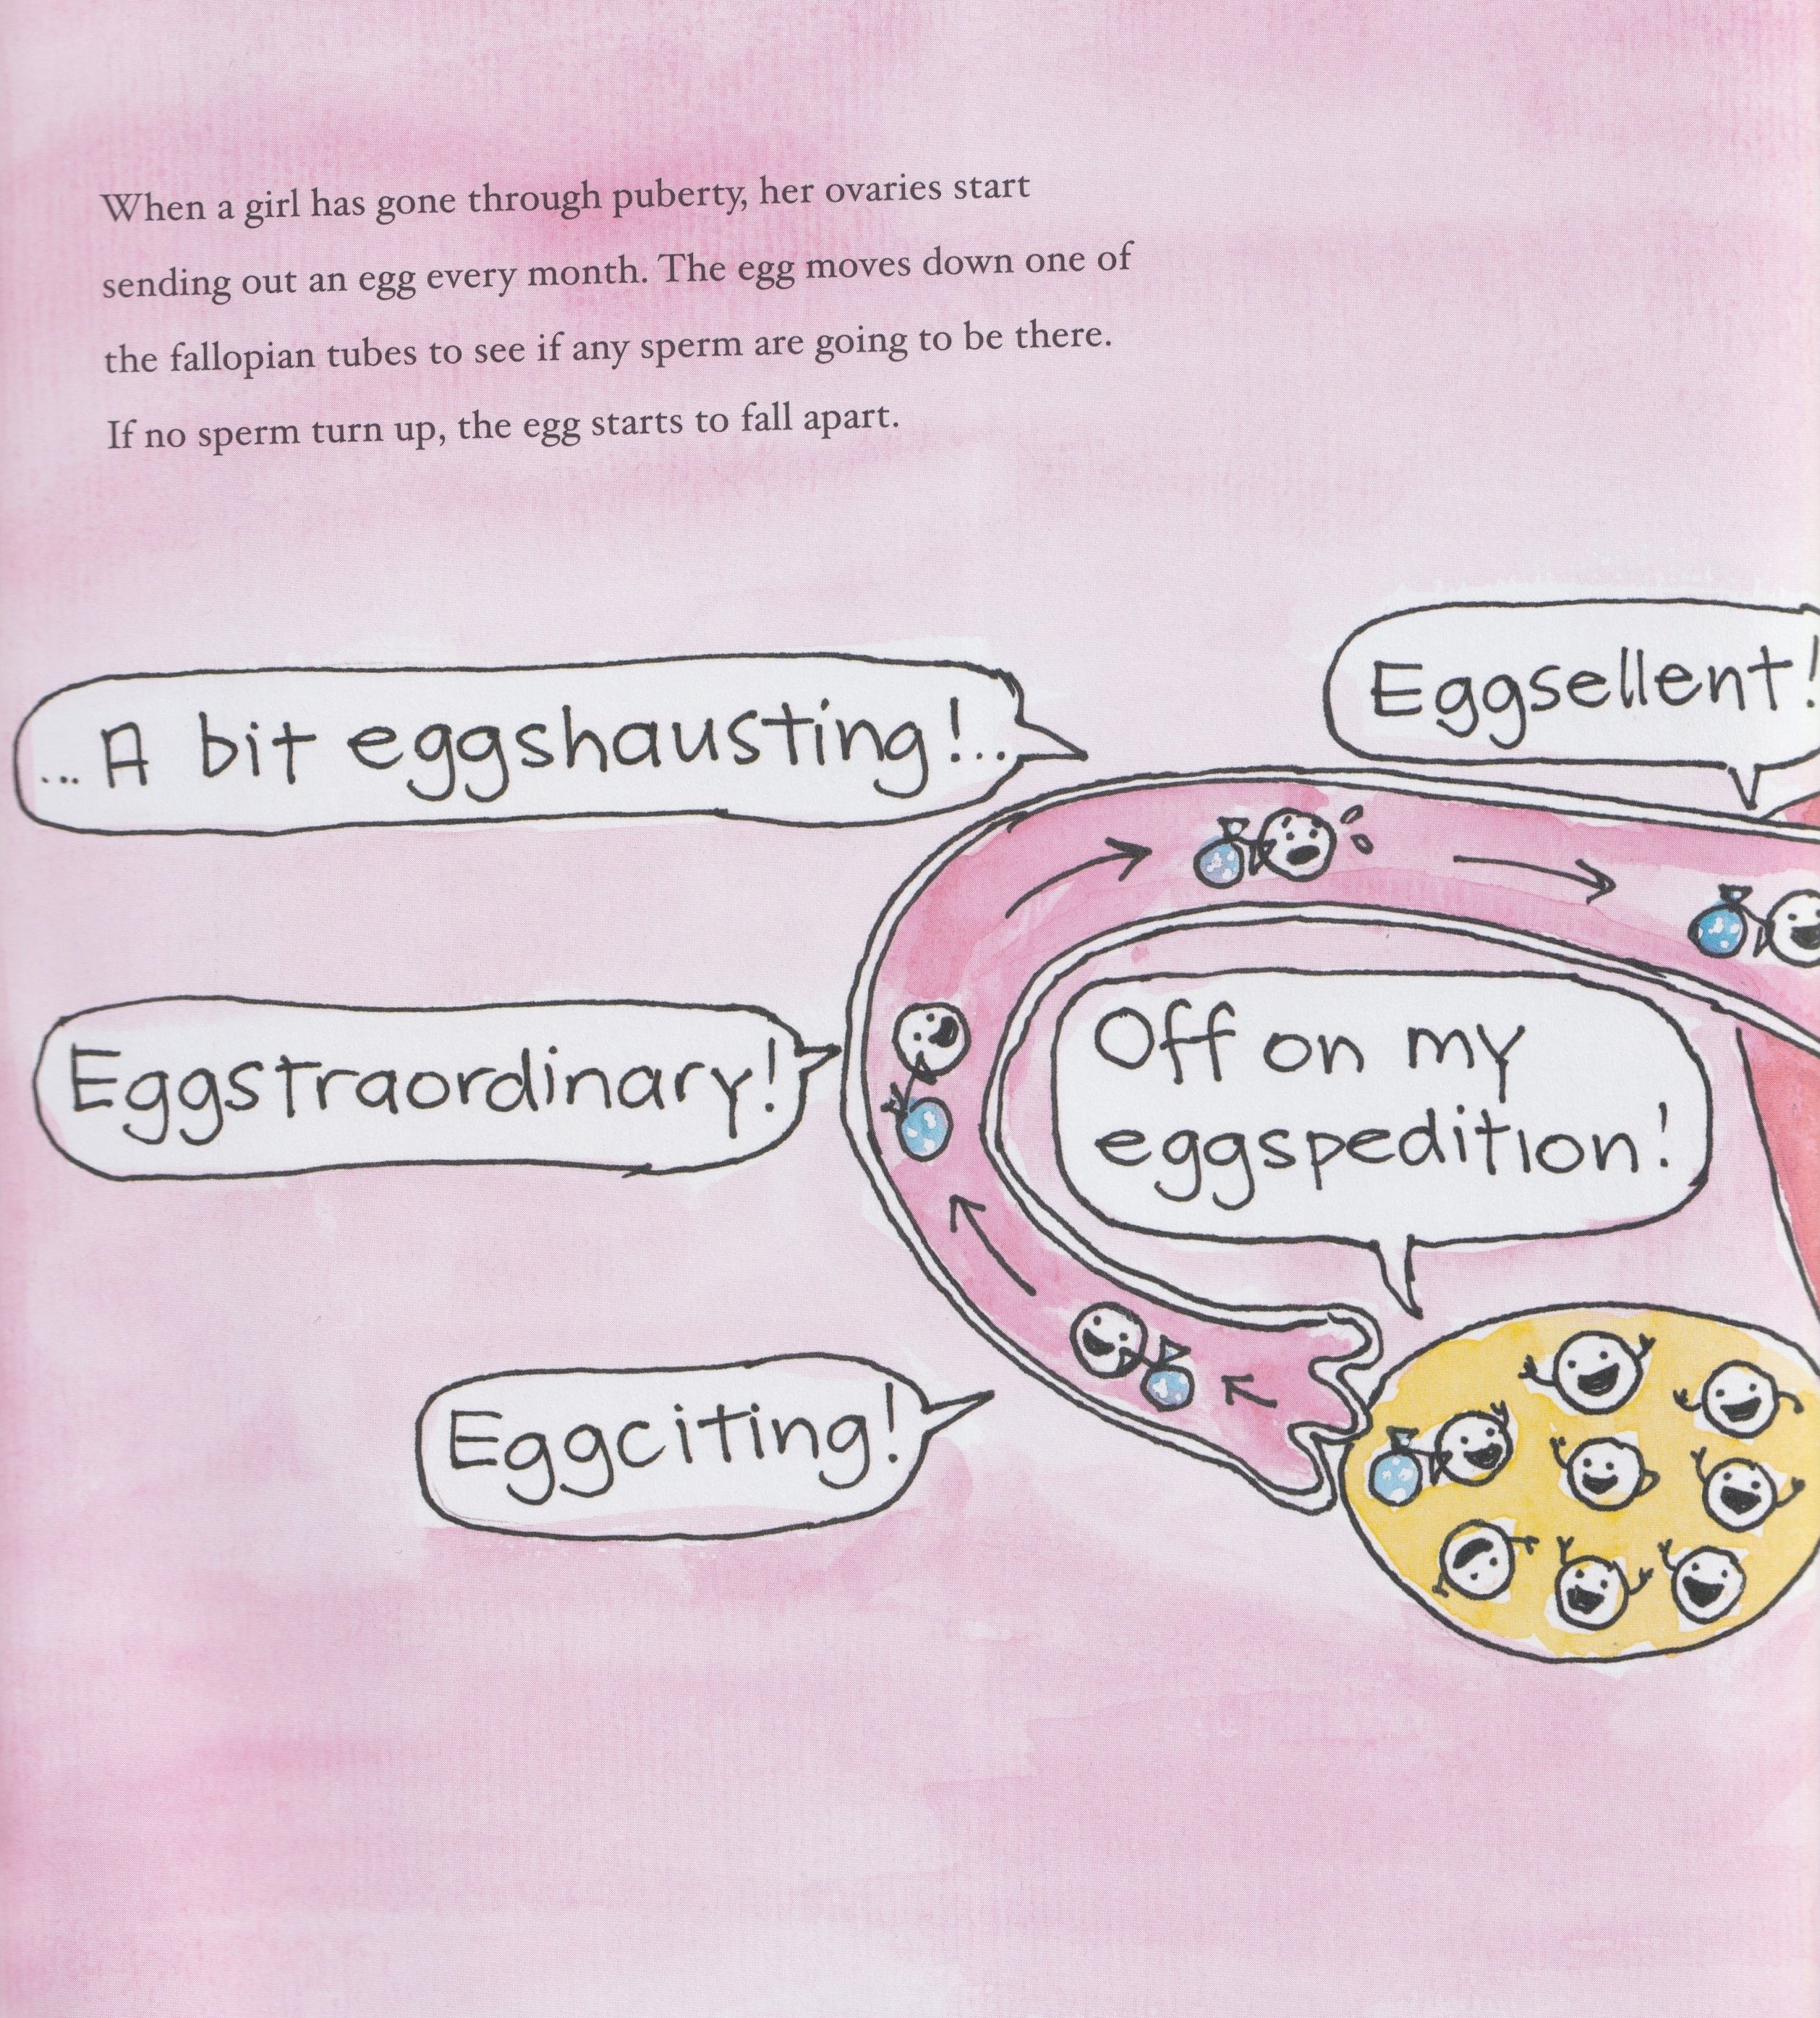 When a girl has gone through puberty, her ovaries start
sending out an egg every month. The egg moves down one of
the fallopian tubes to see if any sperm are going to be there.
If no sperm turn up, the egg starts to fall apart.
Eggsellent!
... A bit eggshausting!...
Eggstraordinary!
Off on my
eggspedition!
Eggciting!